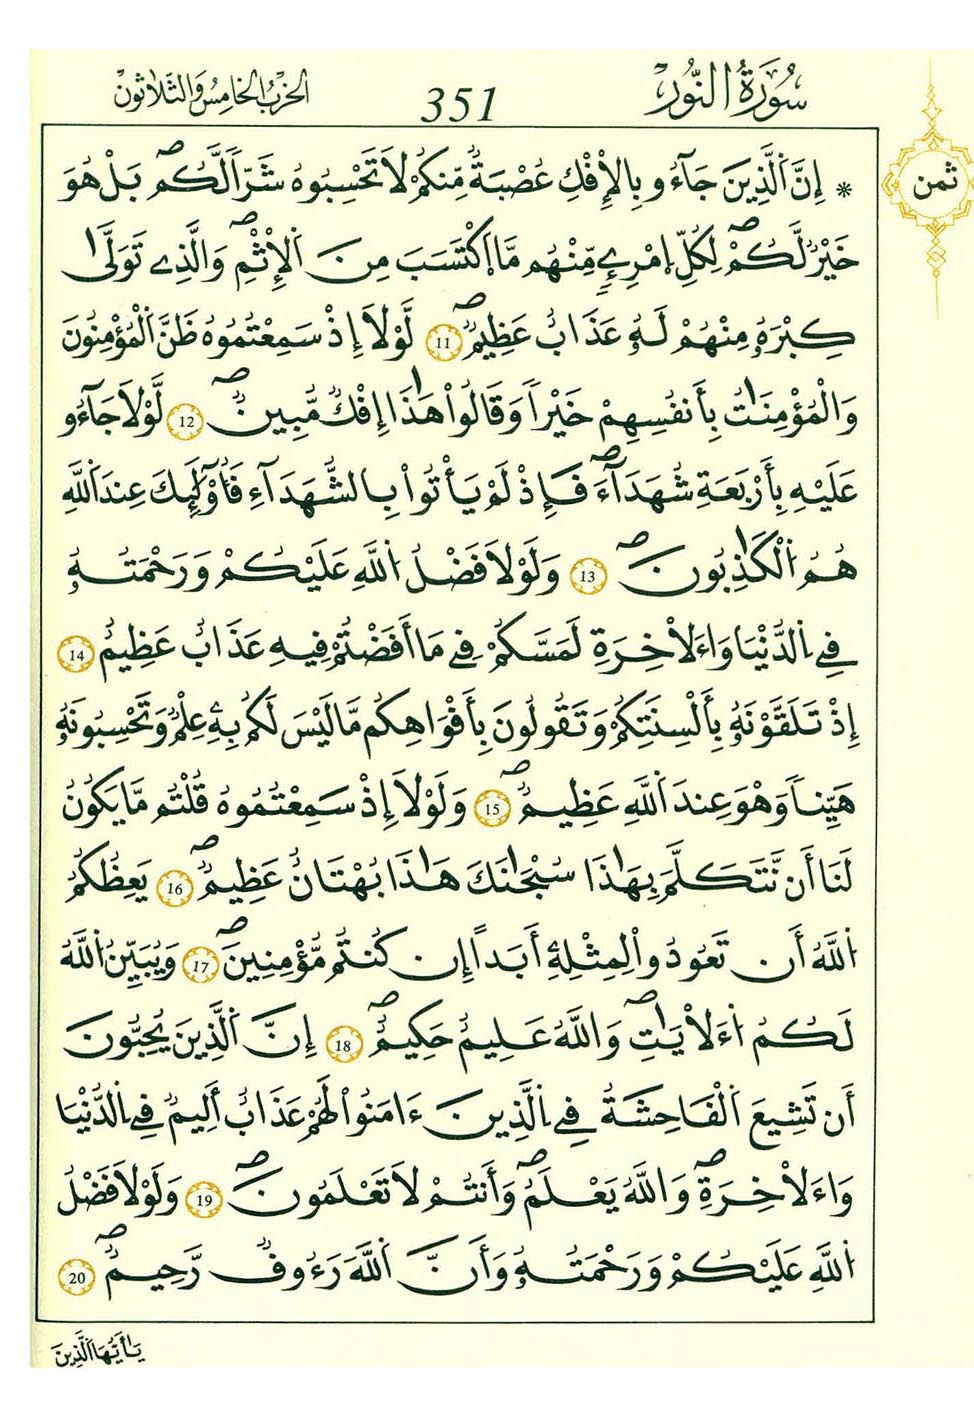 سُورَةُ النُّورِ
351
الحِزْبُ الخَامِسُ وَالثَّلَاثُونَ
ثمن
* إِنَّ اَلذِينَ جَآءُو بِالِافْكِ عُصْبَةٞ مِّنكُمْ لَا تَحْسِبُوهُ شَرّاٗ لَّكُمۖ بَلْ هُوَ
خَيْرٞ لَّكُمْۖ لِكُلِّ اِمْرِےٕٖ مِّنْهُم مَّا اَكْتَسَبَ مِنَ اَلِاثْمِۖ وَالذِے تَوَلَّىٰ
كِبْرَهُۥ مِنْهُمْ لَهُۥ عَذَابٌ عَظِيمٞۖ 11 لَّوْلَا إِذْ سَمِعْتُمُوهُ ظَنَّ اَلْمُومِنُونَ
وَالْمُومِنَٰتُ بِأَنفُسِهِمْ خَيْراٗ وَقَالُواْ هَٰذَا إِفْكٞ مُّبِينٞۖ 12 لَّوْلَا جَآءُو
عَلَيْهِ بِأَرْبَعَةِ شُهَدَآءَۖ فَإِذْ لَمْ يَاتُواْ بِالشُّهَدَآءِ فَأُوْلَٰٓئِكَ عِندَ اَللَّهِ
هُمُ اُلْكَٰذِبُونَۖ 13 وَلَوْلَا فَضْلُ اُللَّهِ عَلَيْكُمْ وَرَحْمَتُهُۥ
فِے اِلدُّنْيَا وَاءَلَاخِرَةِ لَمَسَّكُمْ فِے مَا أَفَضْتُمْ فِيهِ عَذَابٌ عَظِيمٌ 14
إِذْ تَلَقَّوْنَهُۥ بِأَلْسِنَتِكُمْ وَتَقُولُونَ بِأَفْوَاهِكُم مَّا لَيْسَ لَكُم بِهِۦ عِلْمٞ وَتَحْسِبُونَهُۥ
هَيِّناٗ وَهْوَ عِندَ اَللَّهِ عَظِيمٞۖ 15 وَلَوْلَا إِذْ سَمِعْتُمُوهُ قُلْتُم مَّا يَكُونُ
لَنَا أَن نَّتَكَلَّمَ بِهَٰذَا سُبْحَٰنَكَ هَٰذَا بُهْتَانٌ عَظِيمٞۖ 16 يَعِظُكُمُ
اُللَّهُ أَن تَعُودُواْ لِمِثْلِهِۦ أَبَداً إِن كُنتُم مُّومِنِينَۖ 17 وَيُبَيِّنُ اُللَّهُ
لَكُمُ اُءَلَايَٰتِۖ وَاللَّهُ عَلِيمٌ حَكِيمٌۖ 18 إِنَّ اَلذِينَ يُحِبُّونَ
أَن تَشِيعَ اَلْفَاحِشَةُ فِے اِلذِينَ ءَامَنُواْ لَهُمْ عَذَابٌ أَلِيمٞ فِے اِلدُّنْيَا
وَاءَلَاخِرَةِۖ وَاللَّهُ يَعْلَمُۖ وَأَنتُمْ لَا تَعْلَمُونَۖ 19 وَلَوْلَا فَضْلُ
اُللَّهِ عَلَيْكُمْ وَرَحْمَتُهُۥ وَأَنَّ اَللَّهَ رَءُوفٞ رَّحِيمٞۖ 20
يَٰأَيُّهَا اَلذِينَ